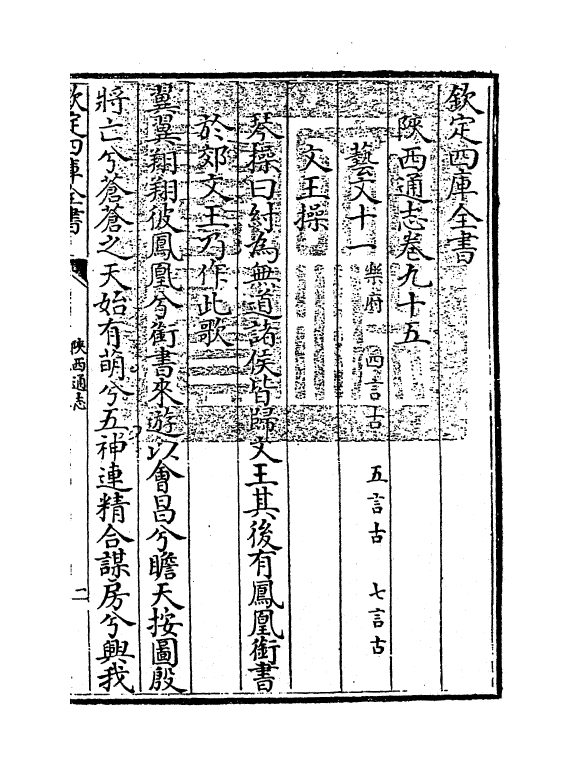 欽定四庫全書
陜西通志卷九十五
藝文十一 樂府 四言古 五言古 七言古
文王操
琴操曰紂為無道諸侯皆歸文王其後有鳳凰銜書
於郊文王乃作此歌
翼翼翔翔彼鳳凰兮銜書來遊以會昌兮瞻天按圖殷
將亡兮蒼蒼之天始有萌兮五神連精合謀房兮興我
欽定四庫全書
陜西通志